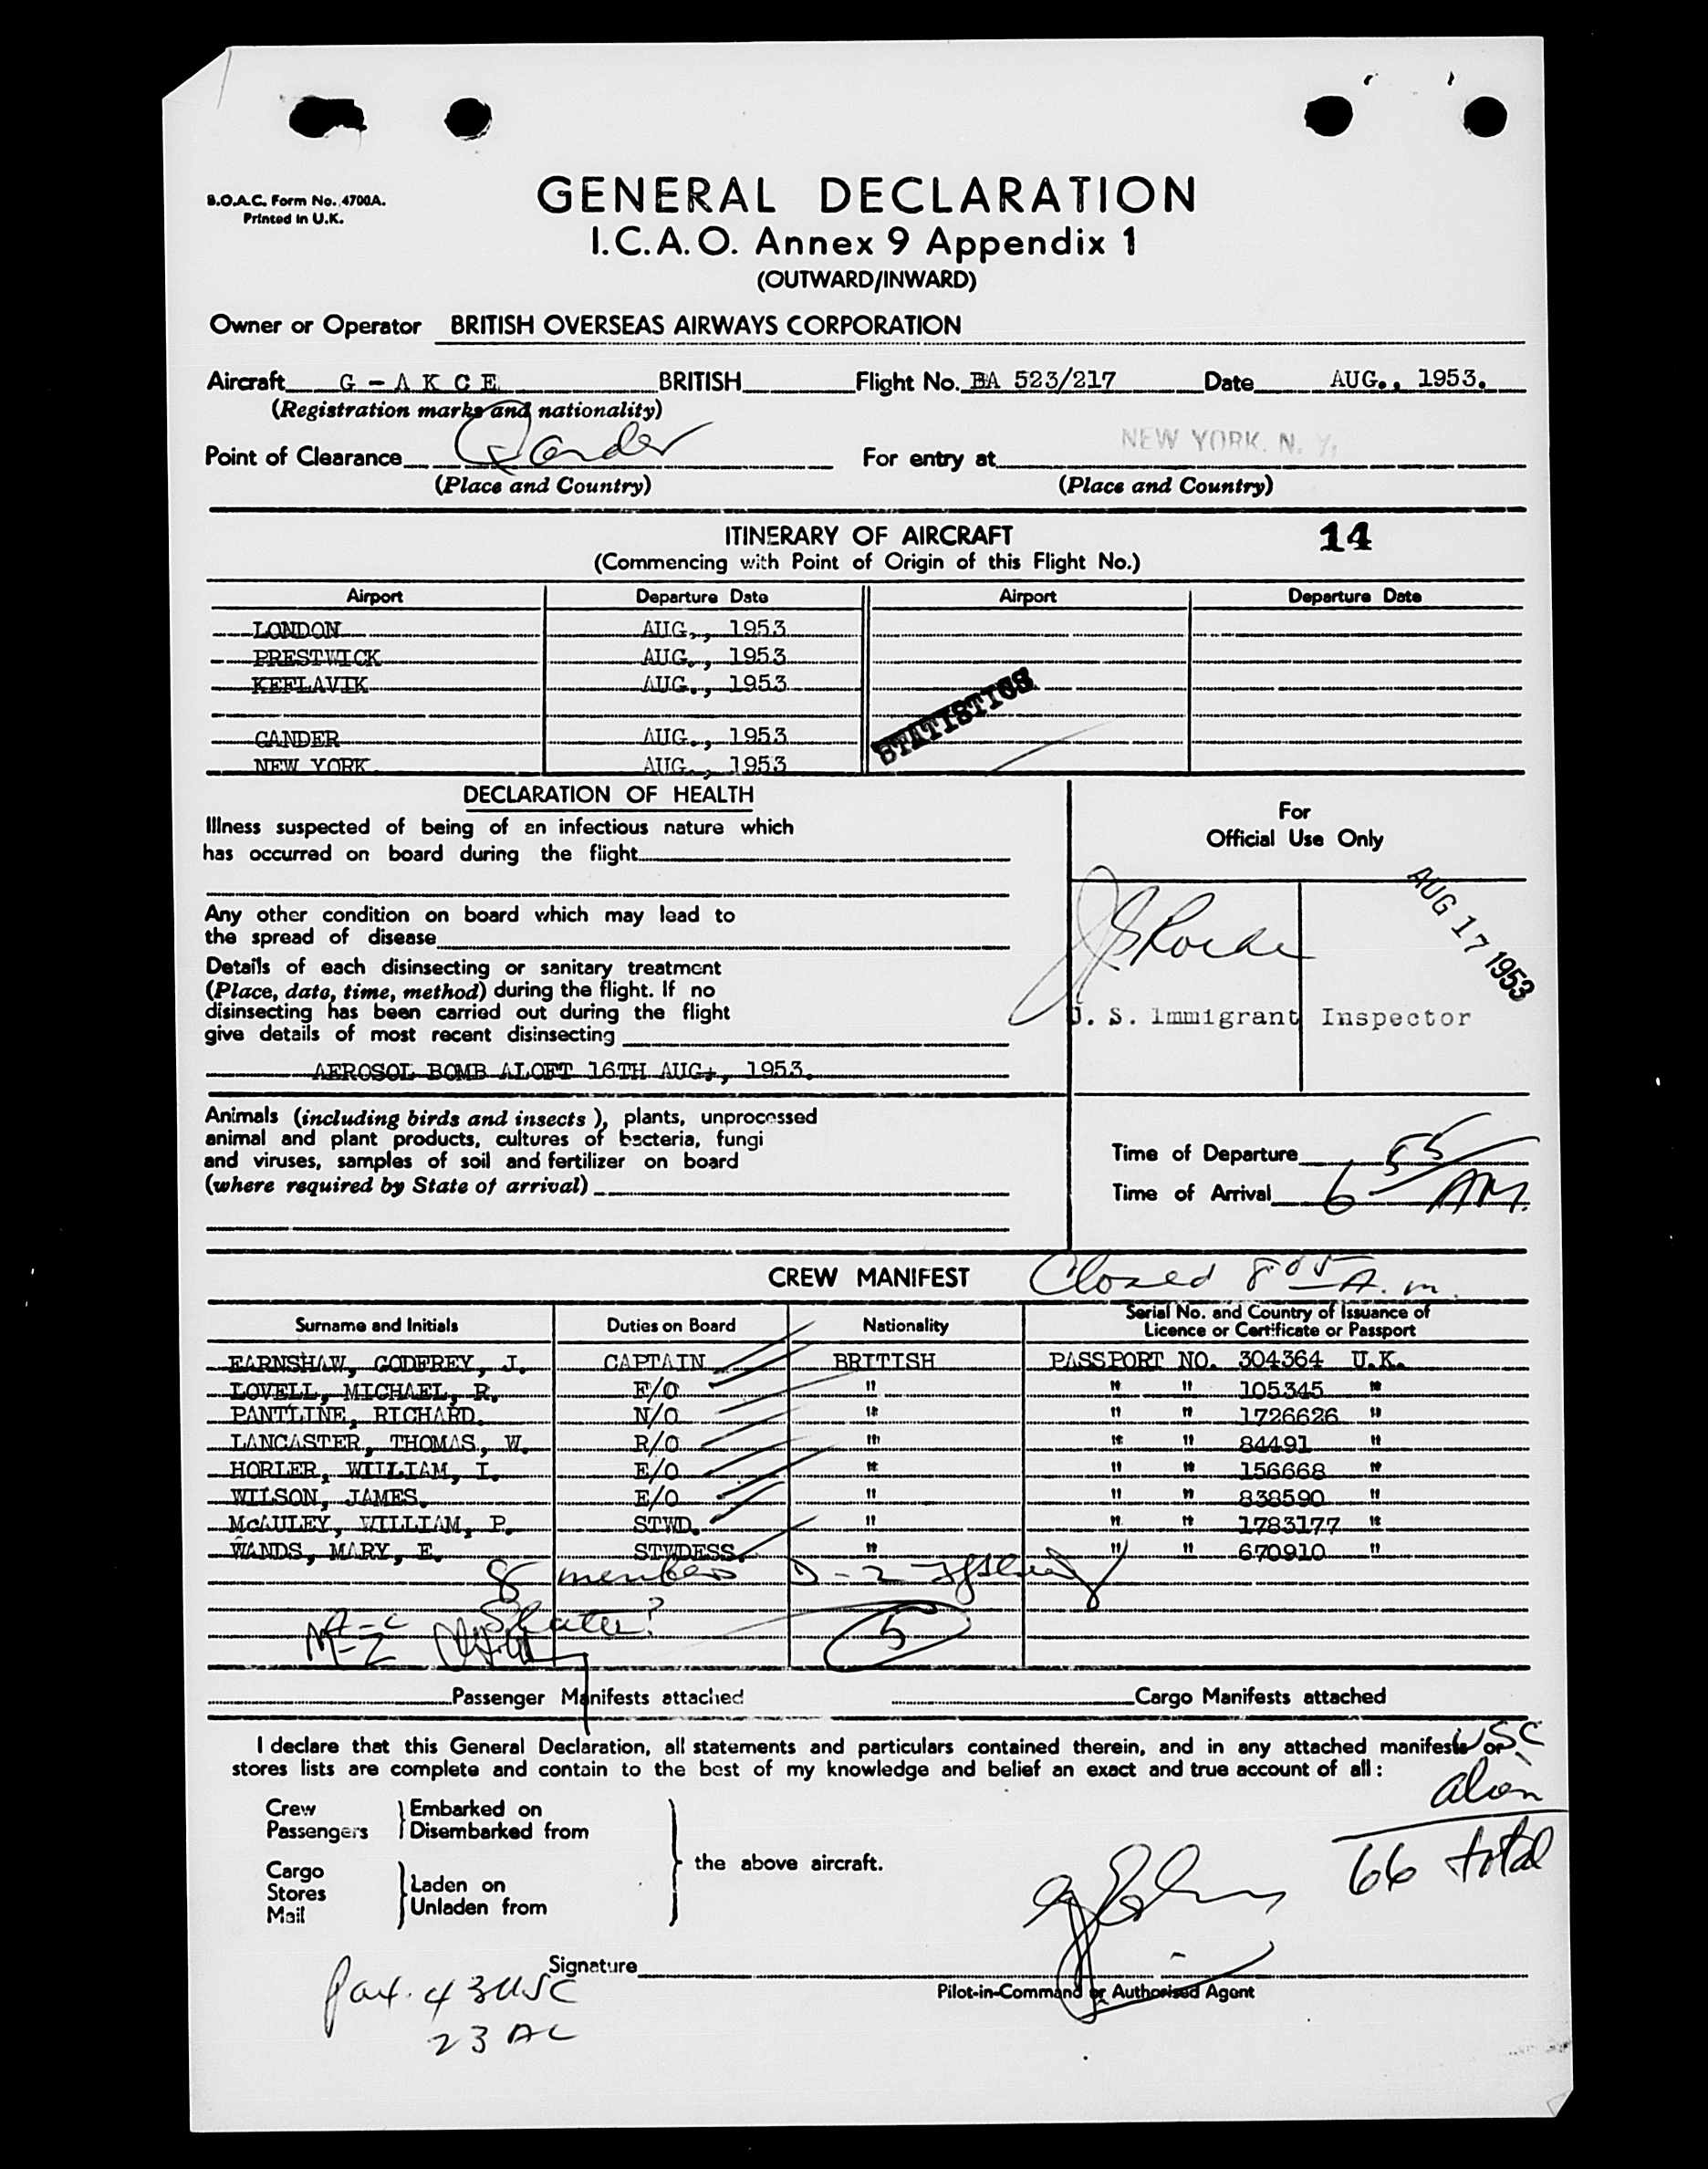 B.O.A.C. Form No. 4700A.
Printed in U.K.
GENERAL DECLARATION
I.C.A.O. Annex 9 Appendix 1
(OUTWARD/INWARD)
Owner or Operator BRITISH OVERSEAS AIRWAYS CORPORATION
Aircraft G - A K C E BRITISH Flight No. BA 523/217 Date AUG., 1953.
(Registration marks and nationality)
Point of Clearance Gander For entry at NEW YORK. N. Y.
(Place and Country) (Place and Country)
ITINERARY OF AIRCRAFT 14
(Commencing with Point of Origin of this Flight No.)
Airport Departure Date Airport Departure Date
LONDON AUG., 1953
PRESTWICK AUG., 1953
KEFLAVIK AUG., 1953
STATISTICS
GANDER AUG., 1953
NEW YORK AUG., 1953
DECLARATION OF HEALTH
Illness suspected of being of an infectious nature which
has occurred on board during the flight
Any other condition on board which may lead to
the spread of disease
Details of each disinsecting or sanitary treatment
(Place, date, time, method) during the flight. If no
disinsecting has been carried out during the flight
give details of most recent disinsecting
AEROSOL BOMB ALOFT 16TH AUG., 1953.
Animals (including birds and insects), plants, unprocessed
animal and plant products, cultures of bacteria, fungi
and viruses, samples of soil and fertilizer on board
(where required by State of arrival)
For
Official Use Only
AUG 17 1953
U. S. Immigrant Inspector
Time of Departure
Time of Arrival 6 55 AM.
CREW MANIFEST Closed 8 05 A.m.
Surname and Initials Duties on Board Nationality Serial No. and Country of Issuance of
Licence or Certificate or Passport
EARNSHAW, GODFREY, J. CAPTAIN BRITISH PASSPORT NO. 304364 U.K.
LOVELL, MICHAEL, R. F/O " " " 105345 "
PANTLINE, RICHARD. N/O " " " 1726626 "
LANCASTER, THOMAS, W. R/O " " " 84491 "
HORLER, WILLIAM, I. E/O " " " 156668 "
WILSON, JAMES. E/O " " " 838590 "
McAULEY, WILLIAM, P. STWD. " " " 1783177 "
WANDS, MARY, E. STWDESS. " " " 670910 "
8 members D-2
5
Passenger Manifests attached Cargo Manifests attached
I declare that this General Declaration, all statements and particulars contained therein, and in any attached manifests or
stores lists are complete and contain to the best of my knowledge and belief an exact and true account of all:
USC
alien
66 total
Crew
Passengers
Embarked on
Disembarked from
Cargo
Stores
Mail
Laden on
Unladen from
the above aircraft.
Signature
Pilot-in-Command or Authorised Agent
Pax. 43 USC
23 AL